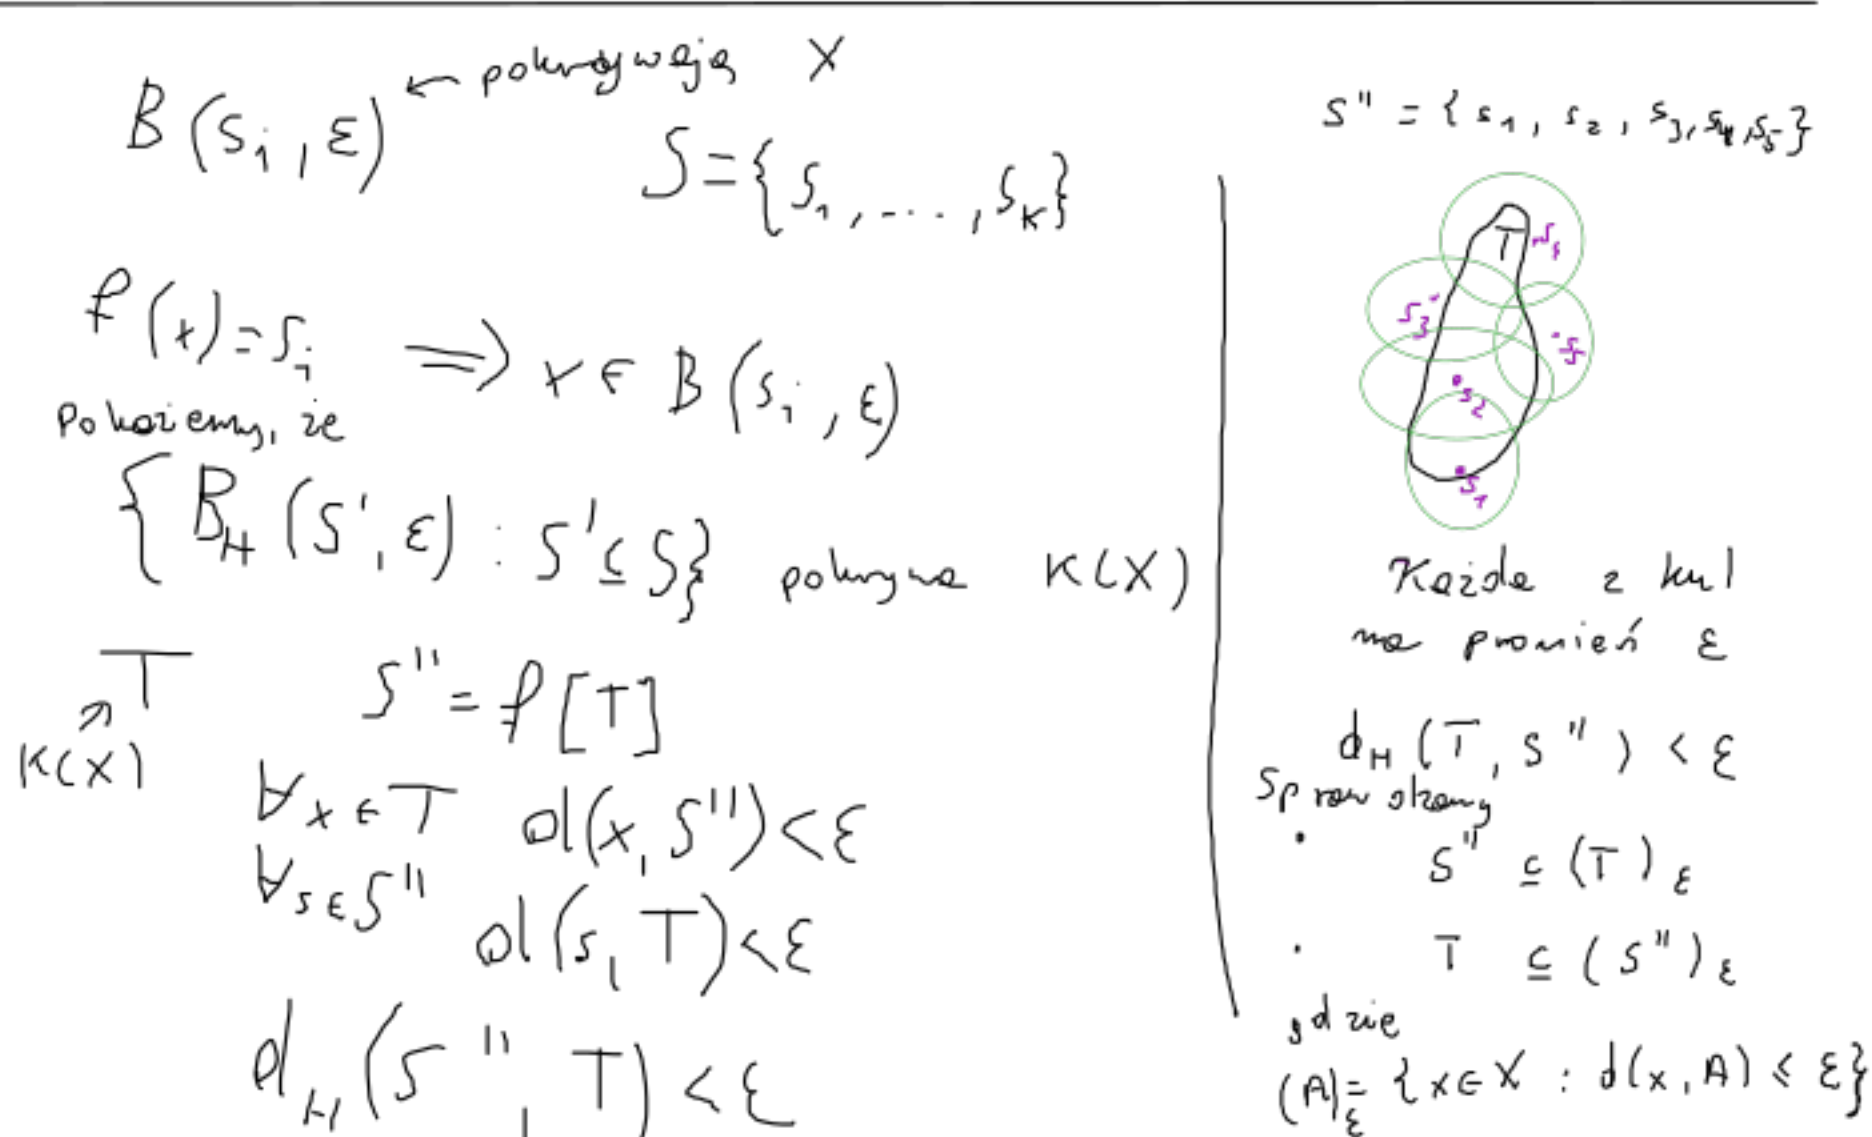 B(s_i, ε) ← pokrywają X
S = {s_1, ..., s_k}
f(x) = s_i ⟹ x ∈ B(s_i, ε)
Pokażemy, że
{B_H(S', ε) : S' ⊆ S} pokrywa K(X)
T S'' = f[T]
↗
K(X)
∀x∈T d(x, S'') < ε
∀s∈S'' d(s, T) < ε
d_H(S'', T) < ε
S'' = {s_1, s_2, s_3, s_4, s_5}
T
s_3
s_5
s_2
s_1
Każda z kul
ma promień ε
d_H(T, S'') < ε
Sprawdzamy
· S'' ⊆ (T)_ε
· T ⊆ (S'')_ε
gdzie
(A)_ε = {x ∈ X : d(x, A) ≤ ε}